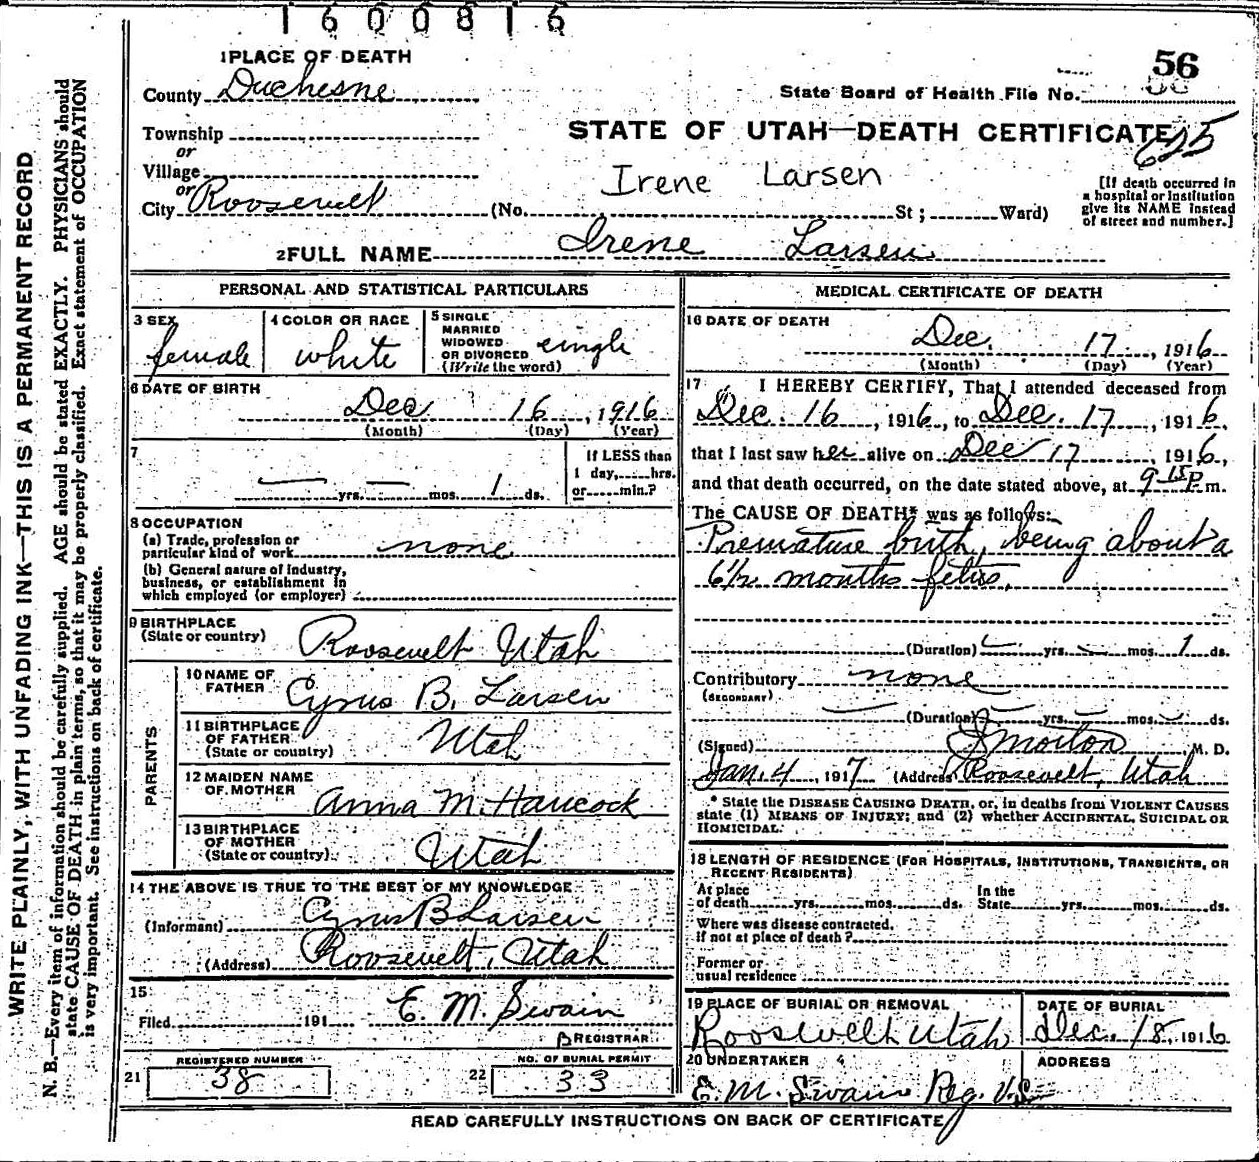 1600816
1 PLACE OF DEATH
56
County Duchesne
State Board of Health File No.
Township
STATE OF UTAH—DEATH CERTIFICATE
or
625
Village
Irene Larsen
or
City Roosevelt (No. St; Ward)
[If death occurred in
a hospital or institution
give its NAME instead
of street and number.]
2 FULL NAME Irene Larsen
PERSONAL AND STATISTICAL PARTICULARS
3 SEX
female
4 COLOR OR RACE
white
5 SINGLE
MARRIED
WIDOWED
OR DIVORCED
(Write the word)
single
6 DATE OF BIRTH
Dec 16, 1916
(Month) (Day) (Year)
7
— yrs. — mos. 1 ds.
If LESS than
1 day, hrs.
or min.?
8 OCCUPATION
(a) Trade, profession or
particular kind of work none
(b) General nature of industry,
business, or establishment in
which employed (or employer)
9 BIRTHPLACE
(State or country) Roosevelt Utah
PARENTS
10 NAME OF
FATHER Cyrus B. Larsen
11 BIRTHPLACE
OF FATHER
(State or country) Utah
12 MAIDEN NAME
OF MOTHER Anna M. Hancock
13 BIRTHPLACE
OF MOTHER
(State or country) Utah
14 THE ABOVE IS TRUE TO THE BEST OF MY KNOWLEDGE
(Informant) Cyrus B Larsen
(Address) Roosevelt, Utah
15
Filed 191 E. M. Swain
REGISTRAR
REGISTERED NUMBER
21 38
NO. OF BURIAL PERMIT
22 33
MEDICAL CERTIFICATE OF DEATH
16 DATE OF DEATH
Dec. 17, 1916
(Month) (Day) (Year)
17 I HEREBY CERTIFY, That I attended deceased from
Dec. 16, 1916, to Dec. 17, 1916,
that I last saw her alive on Dec 17, 1916,
and that death occurred, on the date stated above, at 9 15 P. m.
The CAUSE OF DEATH* was as follows:
Premature birth, being about a
6 1/2 months fetus.
(Duration) yrs. mos. 1 ds.
Contributory none
(SECONDARY)
(Duration) yrs. mos. ds.
(Signed) J Morton M. D.
Jan. 4, 1917 (Address) Roosevelt, Utah
* State the DISEASE CAUSING DEATH, or, in deaths from VIOLENT CAUSES
state (1) MEANS OF INJURY; and (2) whether ACCIDENTAL, SUICIDAL OR
HOMICIDAL.
18 LENGTH OF RESIDENCE (FOR HOSPITALS, INSTITUTIONS, TRANSIENTS, OR
RECENT RESIDENTS)
At place
of death yrs. mos. ds.
In the
State yrs. mos. ds.
Where was disease contracted,
if not at place of death?
Former or
usual residence
19 PLACE OF BURIAL OR REMOVAL
Roosevelt Utah
DATE OF BURIAL
Dec. 18, 1916
20 UNDERTAKER
E. M. Swain Reg. V.S.
ADDRESS
READ CAREFULLY INSTRUCTIONS ON BACK OF CERTIFICATE
WRITE PLAINLY, WITH UNFADING INK—THIS IS A PERMANENT RECORD
N. B.—Every item of information should be carefully supplied. AGE should be stated EXACTLY. PHYSICIANS should
state CAUSE OF DEATH in plain terms, so that it may be properly classified. Exact statement of OCCUPATION
is very important. See instructions on back of certificate.